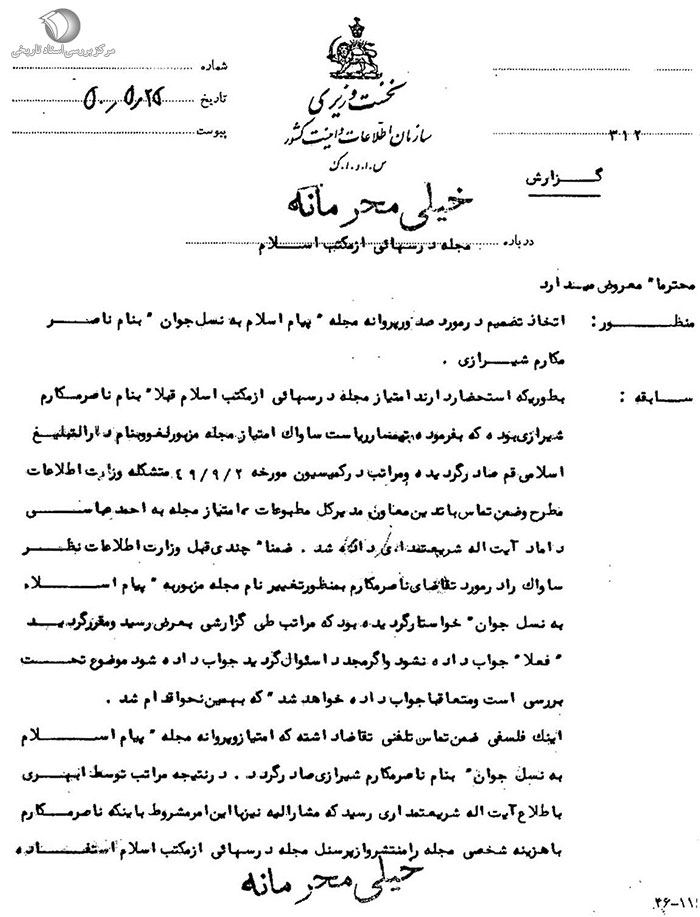 مرکز بررسی اسناد تاریخی
نخست وزیری
سازمان اطلاعات و امنیت کشور
س.ا.و.ا.ک
شماره
تاریخ ۵۰/۵/۲۵
پیوست
۳۱۲
گزارش
خیلی محرمانه
درباره مجله درسهائی ازمکتب اسلام
محترما" معروض میدارد
منظور : اتخاذ تضمیم درمورد صدورپروانه مجله "پیام اسلام به نسل جوان" بنام ناصر
مکارم شیرازی .
سابقه : بطوریکه استحضاردارند امتیاز مجله درسهائی ازمکتب اسلام قبلا" بنام ناصرمکارم
شیرازی بوده که بفرموده تیمسارریاست ساواك امتیاز مجله مزبورلغووبنام دارالتبلیغ
اسلامی قم صادرگردیده ومراتب درکمیسیون مورخه ۴۹/۹/۲ متشکله وزارت اطلاعات
مطرح وضمن تماس باتدین معاون مدیرکل مطبوعات ، امتیاز مجله به احمدعباسی
داماد آیت اله شریعتمداری داده شد . ضمنا" چندی قبل وزارت اطلاعات نظر
ساواك رادرمورد تقاضای ناصرمکارم بمنظورتغییر نام مجله مزبوربه "پیام اسلام
به نسل جوان" خواستارگردیده بود که مراتب طی گزارشی بعرض رسید ومقررگردید
"فعلا" جواب داده نشود واگرمجددا سئوال گردید جواب داده شود موضوع تحت
بررسی است ومتعاقبا جواب داده خواهد شد" که بهمین نحواقدام شد .
اینك فلسفی ضمن تماس تلفنی تقاضاداشته که امتیازوپروانه مجله "پیام اسلام
به نسل جوان" بنام ناصرمکارم شیرازی صادرگردد . درنتیجه مراتب توسط ابهری
باطلاع آیت اله شریعتمداری رسید که مشارالیه نیزبااین امرمشروط باینکه ناصرمکارم
باهزینه شخصی مجله رامنتشروازپرسنل مجله درسهائی ازمکتب اسلام استفاده
خیلی محرمانه
۳۶-۱۱